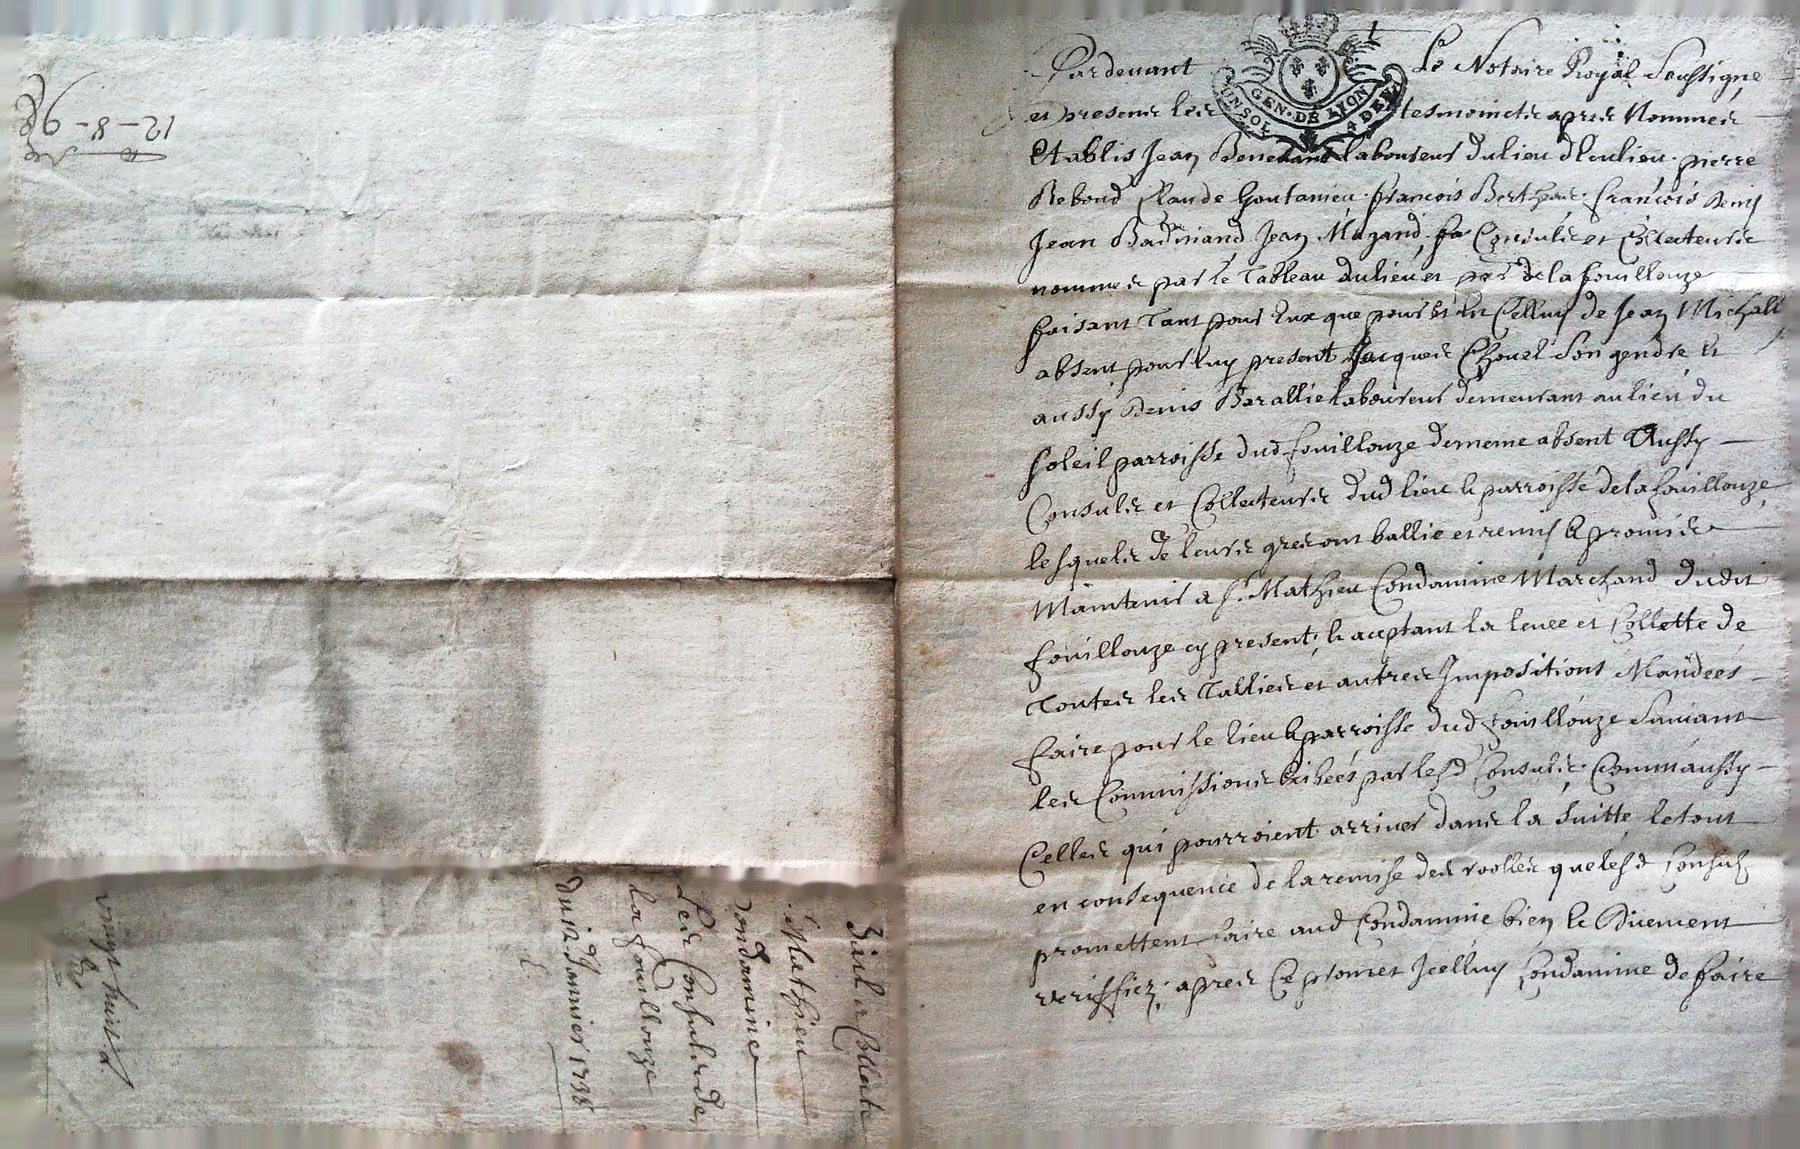 Pardevant Le Notaire Royal Soussigne
et presens les tesmoincts apres Nommes
Etablis Jean laboureur du lieu pierre
Rebond Claude Goutanieu francois francois Denis
Jean Jean Magand Consuls et Collecteurs
nommes par le Tableau du lieu et parr de la fouillouze
faisant Tant pour Eux que pour Et Celluy de Jean Michall
absent pour luy present Jacques Chovet son gendre Et
aussy Denis Barallie laboureur demeurant au lieu du
soleil parroisse dud fouillouze de meme absent Aussy
Consuls et Collecteurs dud lieu & parroisse de la fouillouze
lesquels de leurs gres ont ballie et remis & promis
Maintenir a Sr. Mathieu Condamine Marchand dudit
fouillouze cy present, & acceptant la levee et Collette de
Toutes les Tallies et autres Impositions Mandées
faire pour le lieu & parroisse dud fouillouze suivant
les Commissions par lesd Consuls. Comm'aussy
Celles qui pourroient arriver dans la suitte, le tout
en consequence de la remise des roolles que lesd Consuls
promettent faire aud Condamine bien & Duement
veriffiez; apres Ce promet Icelluy Condamine de faire
12-8-96
Bail et Collecte
Mathieu
Condamine
Les Consuls de
la fouillouze
Du 12 Janvier 1738
vingt huit